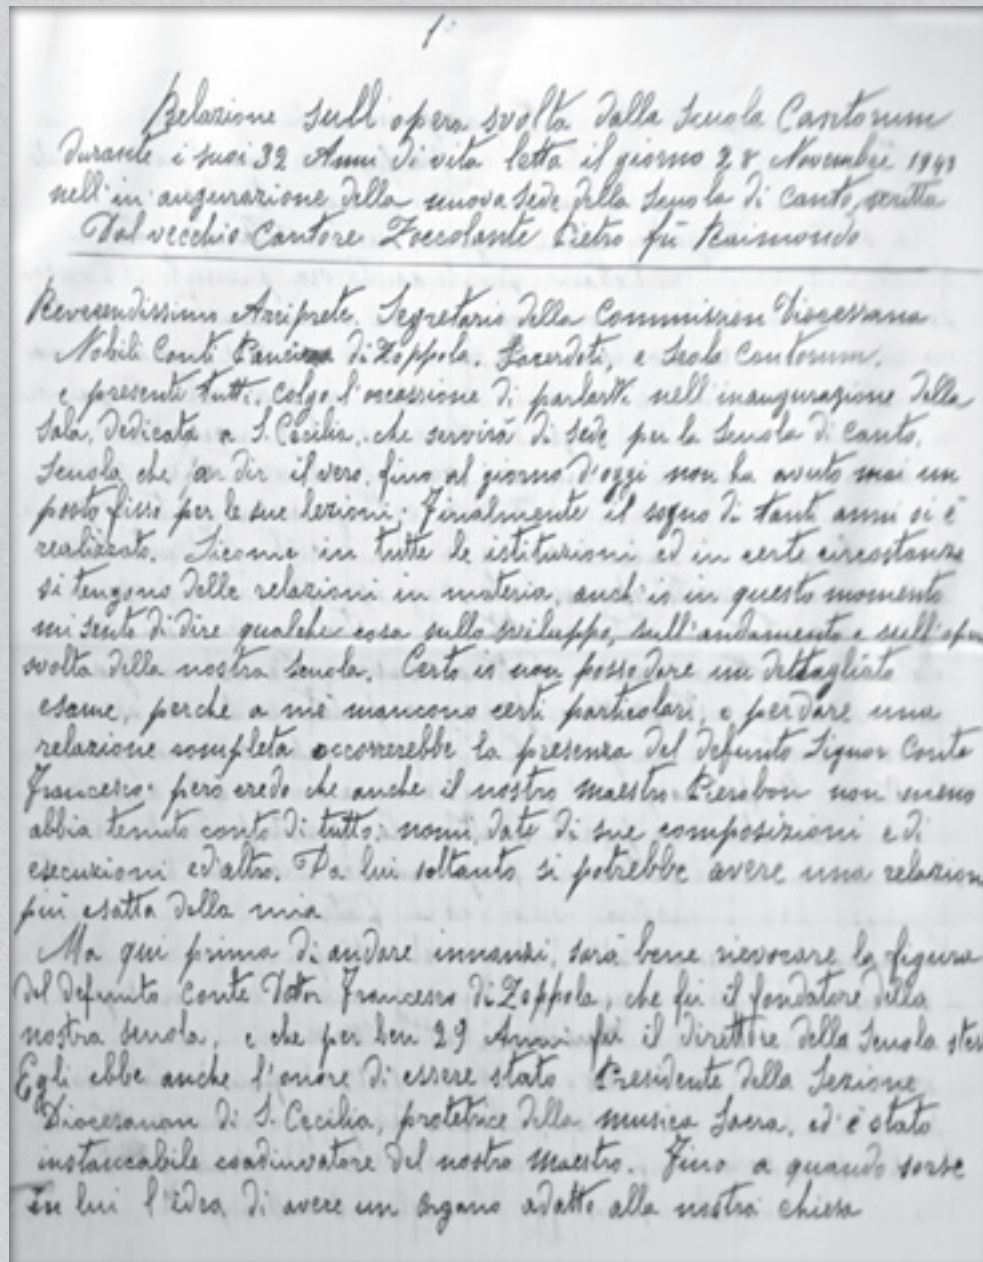 1°
Relazione sull'opera svolta dalla Scuola Cantorum
durante i suoi 32 Anni di vita letta il giorno 28 Novembre 1943
nell'in augurazione della nuova sede della Scuola di Canto, scritta
Dal vecchio Cantore Zoccolante Pietro fù Raimondo
Reverendissimo Arciprete, Segretario della Commission Diocessana
Nobili Conti Panciera di Zoppola, Sacerdoti, e Scola Cantorum,
e presenti tutti, colgo l'occassione di parlarVi nell'inaugurazione della
Sala, dedicata a S. Cecilia, che servirà di sede per la Scuola di Canto,
Scuola che par dir il vero, fino al giorno d'oggi non ha avuto mai un
posto fisso per le sue lezioni; Finalmente il sogno di tanti anni si è
realizzato. Sicome in tutte le istituzioni ed in certe circostanze
si tengono delle relazioni in materia, anch'io in questo momento
mi sento di dire qualche cosa sullo sviluppo, sull'andamento e sull'opera
svolta della nostra Scuola. Certo io non posso dare un dettagliato
esame, perche a mè mancono certi particolari, e per dare una
relazione completa occorrerebbe la presenza del defunto Signor Conte
Francesco: però credo che anche il nostro maestro Pierobon non meno
abbia tenuto conto di tutto: nomi, date di sue composizioni e di
esecuzioni ed'altro. Da lui soltanto si potrebbe avere una relazion
più esatta della mia
Ma qui prima di andare innanzi, sarà bene rievocare la figura
del defunto Conte Dottor Francesco di Zoppola, che fù il fondatore della
nostra scuola, e che per ben 29 Anni fù il direttore della Scuola stes
Egli ebbe anche l'onore di essere stato Presidente della Sezione
Diocesanan di S. Cecilia, protetrice della musica Sacra, ed'è stato
instancabile coadiuvatore del nostro Maestro. Fino a quando sorse
in lui l'idea, di avere un organo adatto alla nostra chiesa